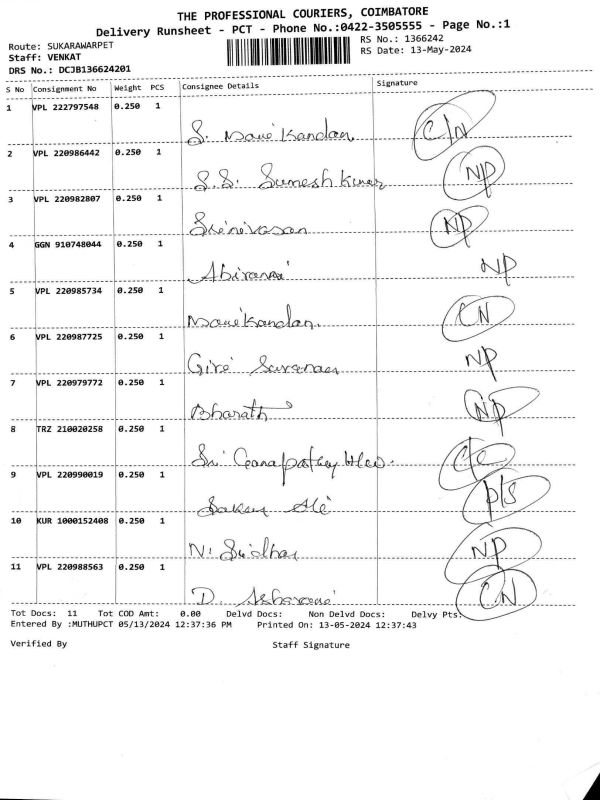 THE PROFESSIONAL COURIERS, COIMBATORE
Delivery Runsheet - PCT - Phone No.:0422-3505555 - Page No.:1
Route: SUKARAWARPET
RS No.: 1366242
Staff: VENKAT
RS Date: 13-May-2024
DRS No.: DCJB136624201
S No Consignment No Weight PCS Consignee Details Signature
1 VPL 222797548 0.250 1
S. Manikandan C/N
2 VPL 220986442 0.250 1
S.S. Sumesh Kumar NP
3 VPL 220982807 0.250 1
Srinivasan NP
4 GGN 910748044 0.250 1
Abirami NP
5 VPL 220985734 0.250 1
Manikandan. CN
6 VPL 220987725 0.250 1
Giri Saravanan NP
7 VPL 220979772 0.250 1
Bharath NP
8 TRZ 210020258 0.250 1
Sri Ganapathy C/C
9 VPL 220990019 0.250 1
P/S
10 KUR 1000152408 0.250 1
N. Sridhar NP
11 VPL 220988563 0.250 1
D. CN
Tot Docs: 11 Tot COD Amt: 0.00 Delvd Docs: Non Delvd Docs: Delvy Pts:
Entered By :MUTHUPCT 05/13/2024 12:37:36 PM Printed On: 13-05-2024 12:37:43
Verified By Staff Signature